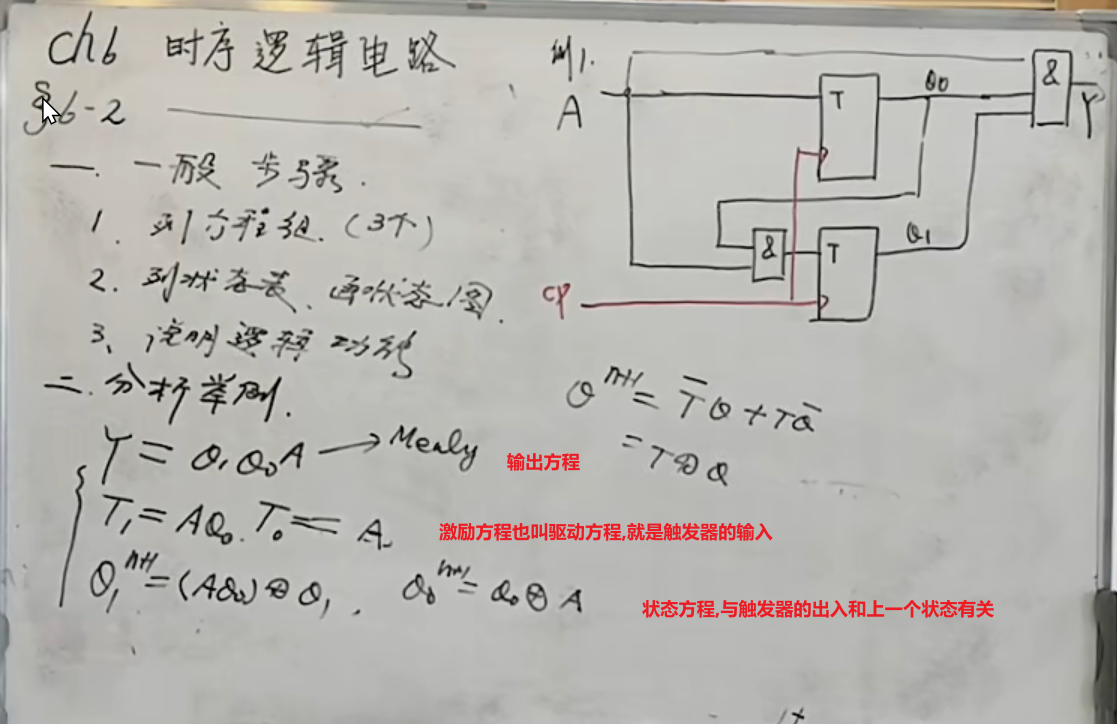 ch6 时序逻辑电路
§6-2
一. 一般步骤.
1. 列方程组. (3个)
2. 列状态表、画状态图.
3、说明逻辑功能
二. 分析举例.
Y = Q₁Q₀A → Mealy
输出方程
T₁ = AQ₀. T₀ = A.
激励方程也叫驱动方程,就是触发器的输入
Q₁ⁿ⁺¹ = (AQ₀) ⊕ Q₁, Q₀ⁿ⁺¹ = Q₀ ⊕ A
状态方程,与触发器的出入和上一个状态有关
例1.
A
T
Q0
&
Y
&
T
Q₁
CP
Qⁿ⁺¹ = T̅Q + TQ̅
= T⊕Q